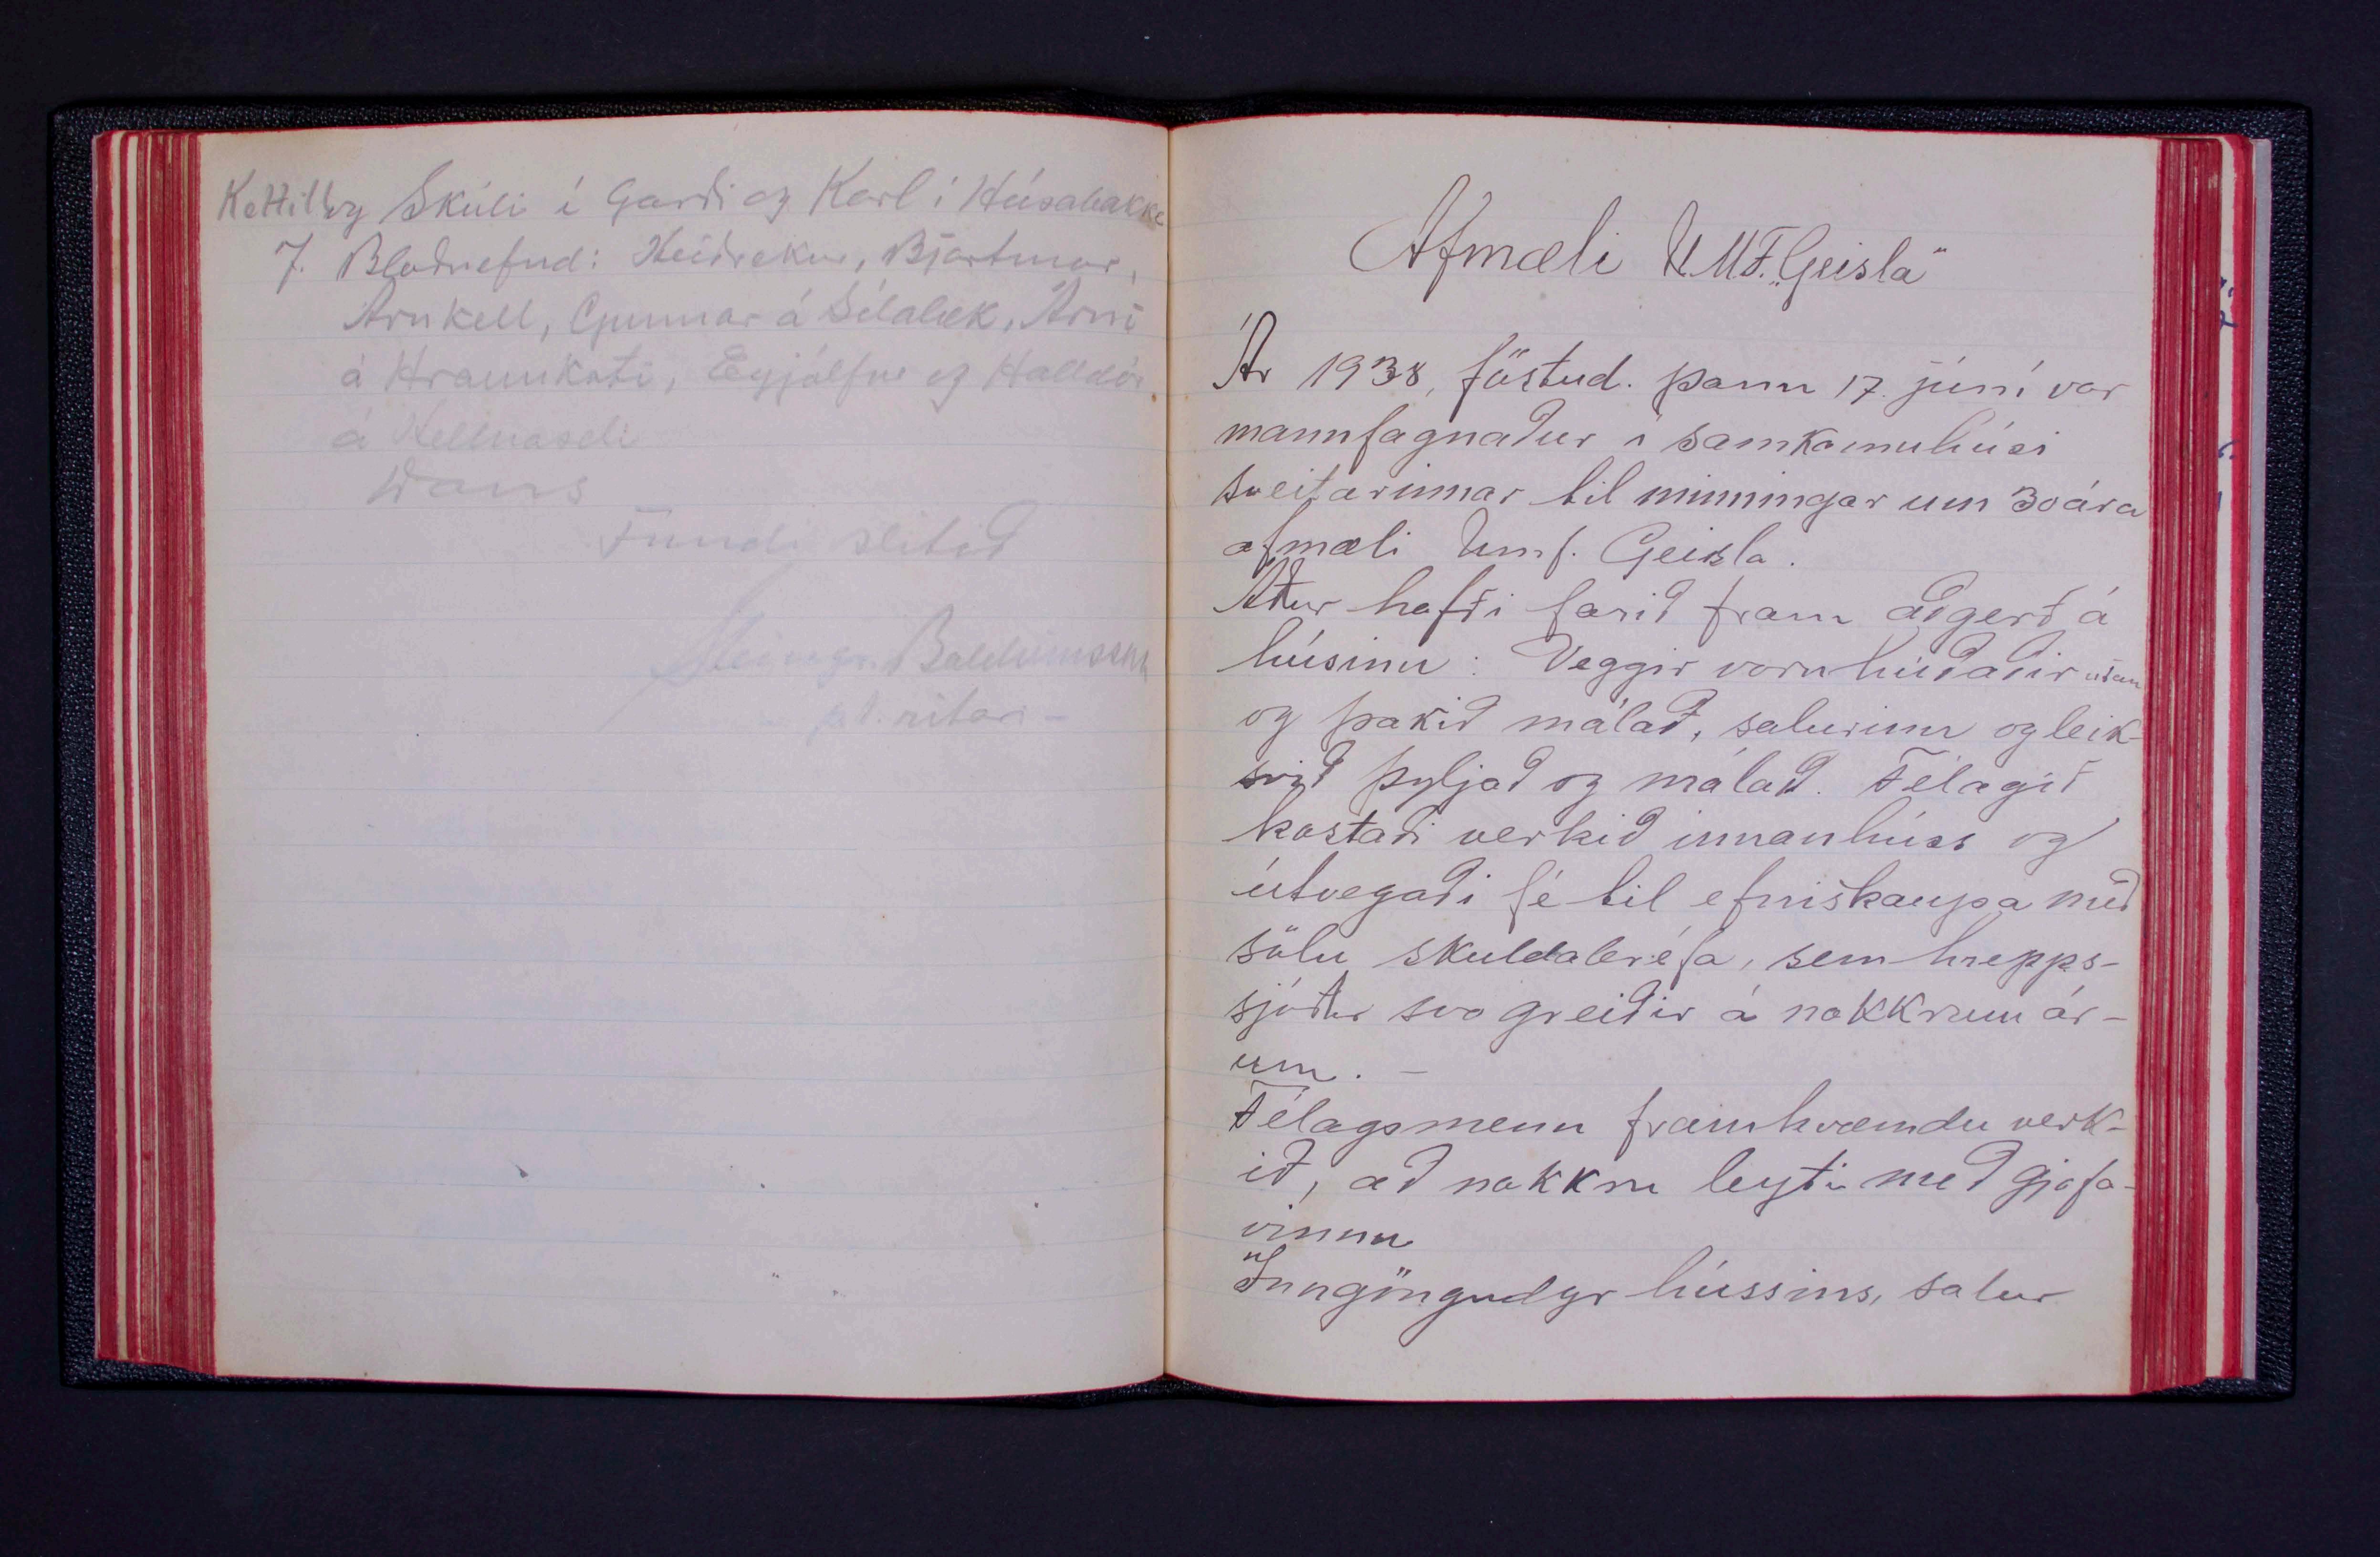 Ketilb. og Skúli í Garði og Karl í Húsabakka
7. Blaðnefnd: Heiðrekur, Bjartmar,
Arnkell, Gunnar á Sílalæk, Árni
á Hraunkoti, Eyjólfur og Halldór
á Hellnaseli
Dans
Fundi slitið
Steingr. Baldvinsson
p.t. ritari -
Afmæli U.M.F. „Geisla"
Ár 1938, föstud. þann 17. júní var
mannfagnaður í samkomuhúsi
sveitarinnar til minningar um 30 ára
afmæli Umf. Geisla.
Áður hafði farið fram aðgerð á
húsinu: Veggir voru húðaðir utan
og þakið málað, salurinn og leik-
svið þyljað og málað. Félagið
kostaði verkið innanhúss og
útvegaði fé til efniskaupa með
sölu skuldabréfa, sem hrepps-
sjóður svo greiðir á nokkrum ár-
um. -
Félagsmenn framkvæmdu verk-
ið, að nokkru leyti með gjafa-
vinnu
Inngöngudyr hússins, salur